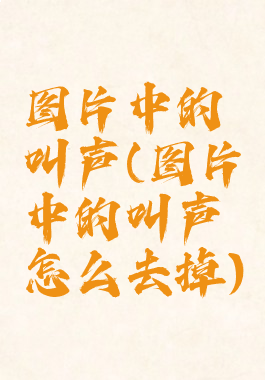 图片中的
叫声(图片
中的叫声
怎么去掉)